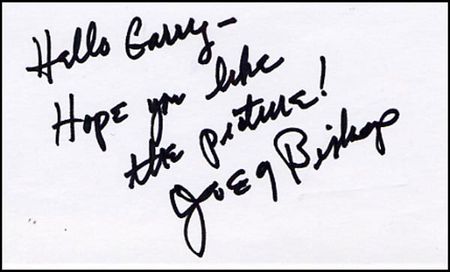 Hello Garry-
Hope you like
the picture!
Joey Bishop